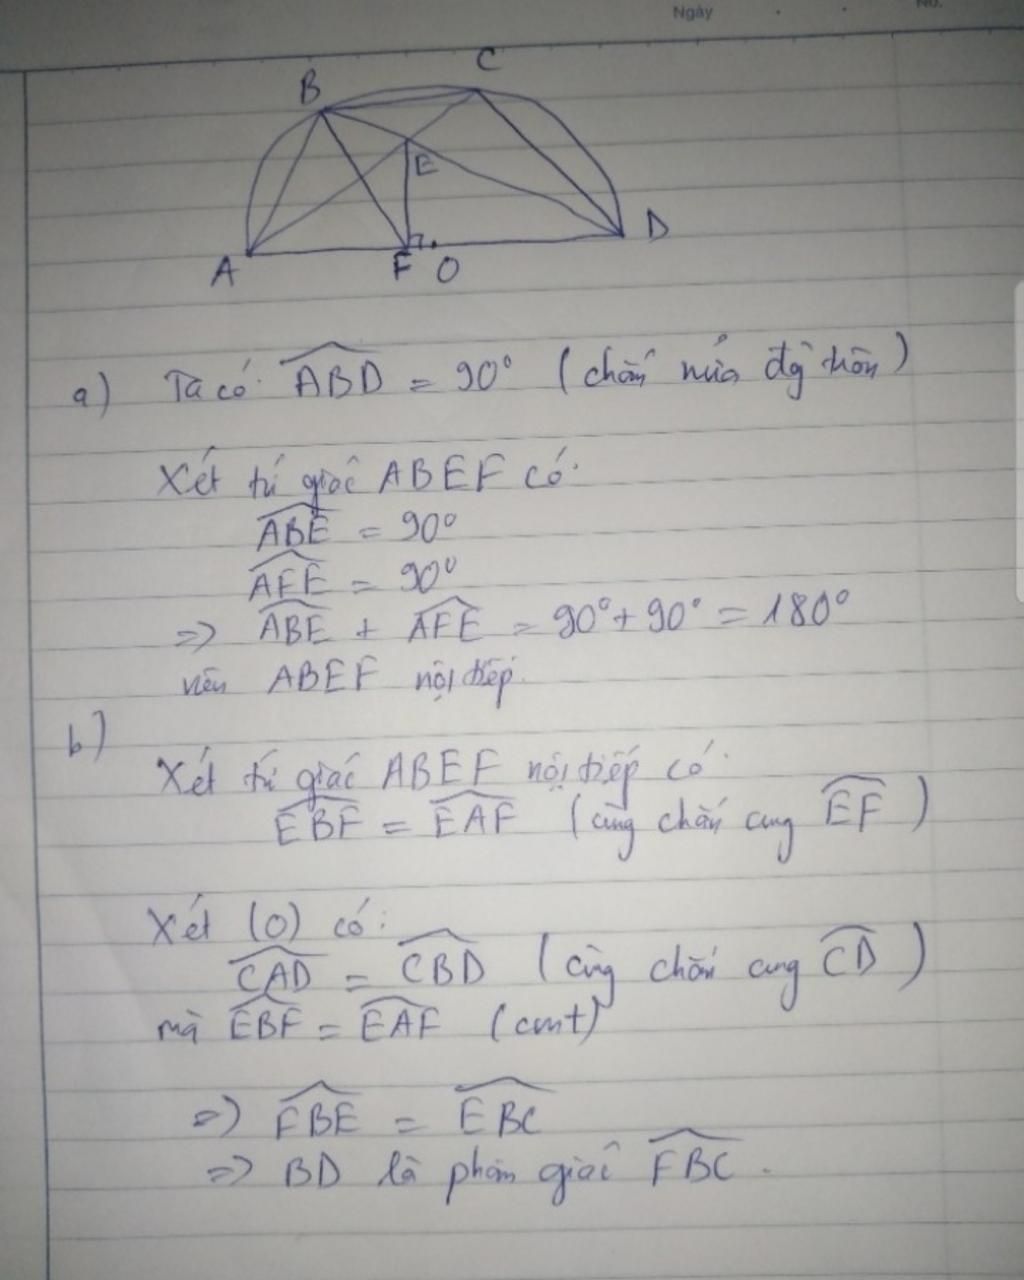 Ngày
No.
B
C
E
D
A
F
O
a) Ta có: ABD = 90° (chắn nửa đg tròn)
Xét tứ giác ABEF có:
ABE = 90°
AFE = 90°
=> ABE + AFE = 90° + 90° = 180°
nên ABEF nội tiếp.
b)
Xét tứ giác ABEF nội tiếp có:
EBF = EAF (cùng chắn cung EF)
Xét (O) có:
CAD = CBD (cùng chắn cung CD)
mà EBF = EAF (cmt)
=> FBE = EBC
=> BD là phân giác FBC.